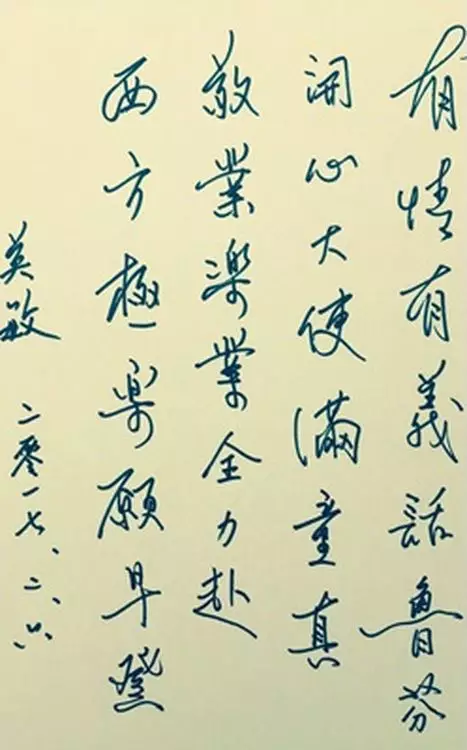 有情有義話魯芬
開心大使滿童真
敬業樂業全力赴
西方極樂願早登
英敏
二零一七、二、六